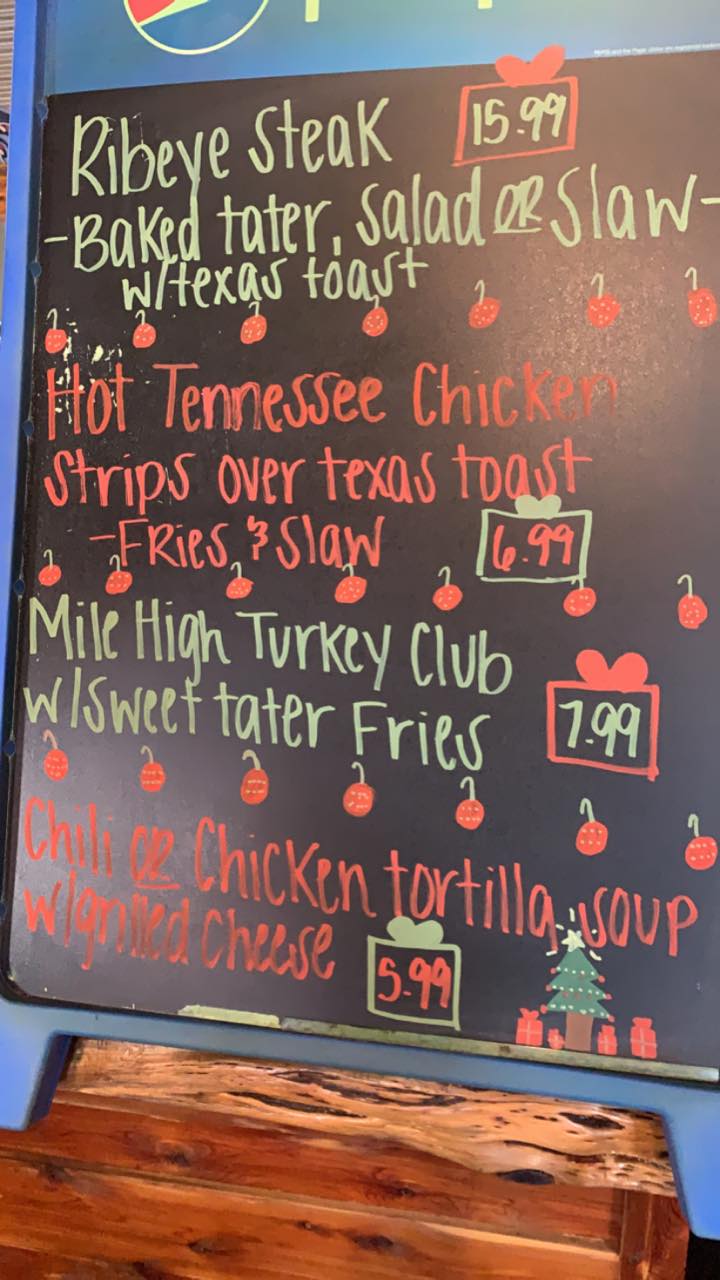 Ribeye Steak 15.99
-Baked tater, Salad OR Slaw-
w/texas toast
Hot Tennessee Chicken
Strips over texas toast
-Fries & Slaw 6.99
Mile High Turkey Club
w/sweet tater Fries 7.99
Chili OR Chicken tortilla soup
w/grilled Cheese 5.99